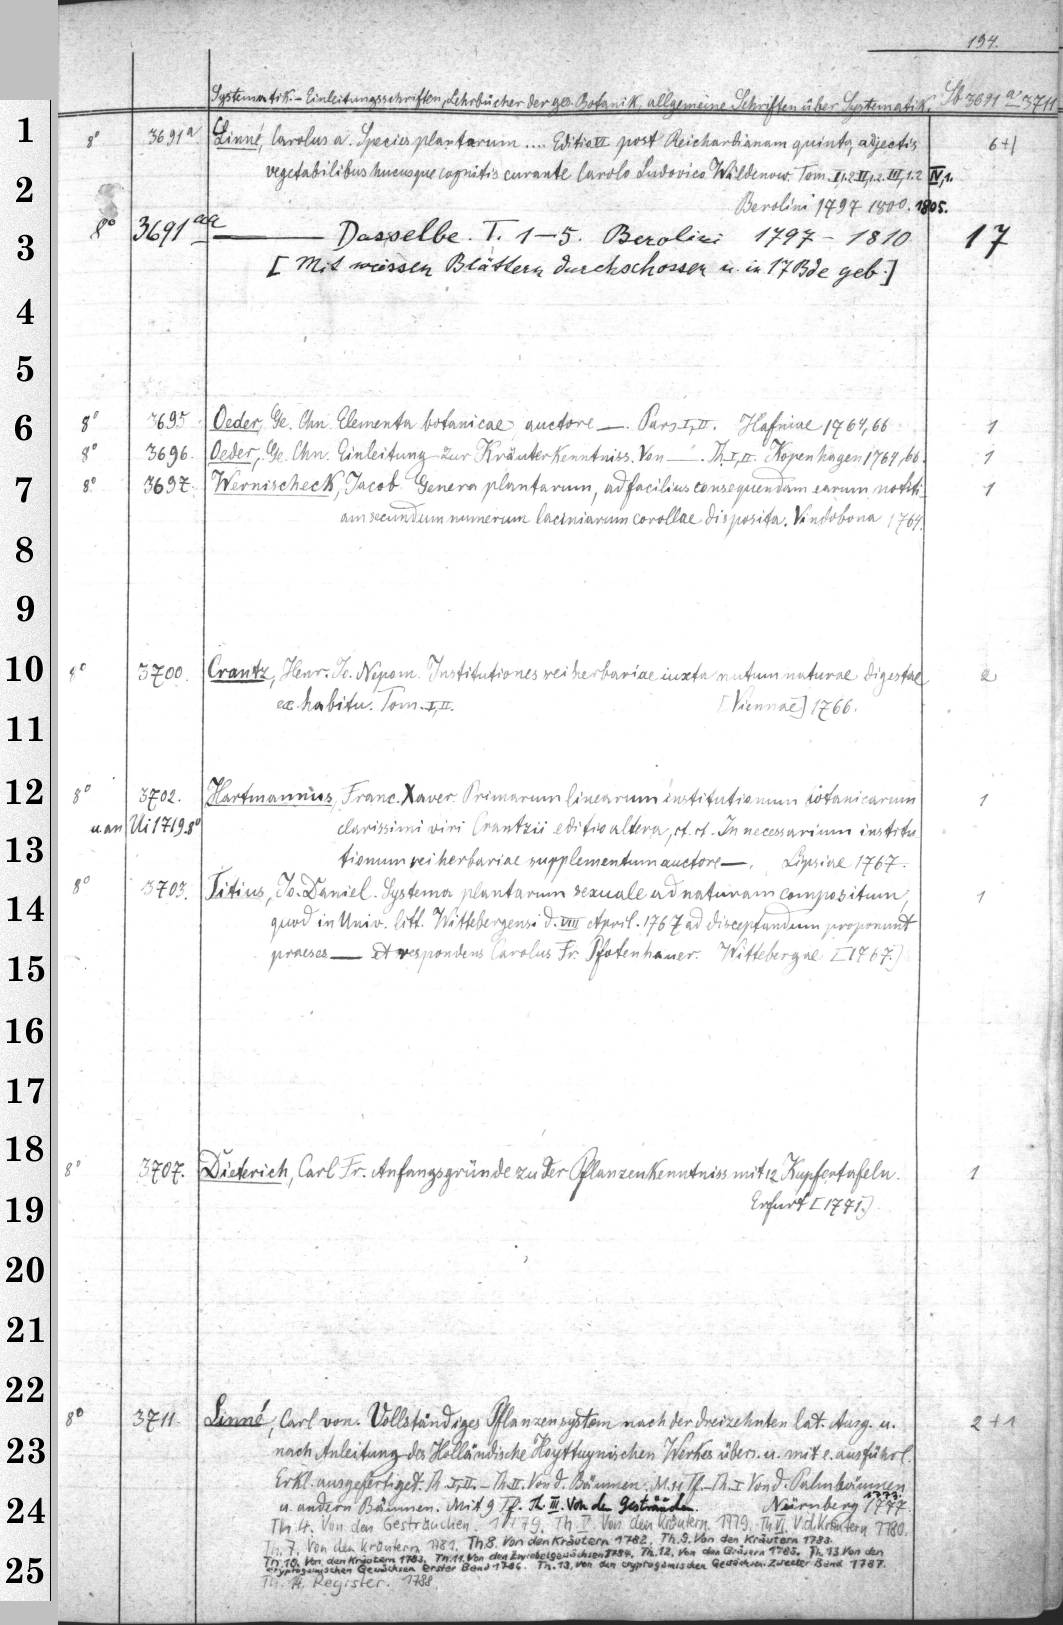 194.
Systematik.- Einleitungsschriften, Lehrbücher der ges. Botanik, allgemeine Schriften über Systematik. Sb 3691 a - 3711
1 8° 3691 a Linné, Carolus a. Species plantarum .... Editio VI post Reichardianam quinta, adjectis 6+1
2 vegetabilibus hucusque cognitis curante Carolo Ludovico Willdenow. Tom. I,1.2 II,1.2. III,1.2 IV,1.
Berolini 1797 1800. 1805.
3 8° 3691 aa ——— Dasselbe. T. 1-5. Berolini 1797 - 1810 17
[Mit weissen Blättern durchschossen u. in 17 Bde geb.]
4
5
6 8° 3695 Oeder, Ge. Chn. Elementa botanicae auctore —. Pars I, II. Hafniae 1764, 66 1
8° 3696. Oeder, Ge. Chn. Einleitung zur Kräuterkenntniss. Von —. Th. I, II. Kopenhagen 1764, 66. 1
7 8° 3697. Wernischeck, Jacob. Genera plantarum, ad facilius consequendam earum notiti- 1
am secundum numerum laciniarum corollae disposita. Vindobona 1764.
8
9
10 8° 3700. Crantz, Henr. Jo. Nepom. Institutiones rei herbariae iuxta nutum naturae digestae 2
11 ex habitu. Tom. I, II. [Viennae] 1766.
12 8° 3702. Hartmannus, Franc. Xaver. Primarum linearum institutionum botanicarum 1
u. an Ui 1719. 8° clarissimi viri Crantzii editio altera, et. et. In necessarium institu
13 tionum rei herbariae supplementum auctore —. Lipsiae 1767.
14 8° 3703. Titius, Jo. Daniel. Systema plantarum sexuale ad naturam compositum, 1
quod in Univ. litt. Wittebergensi d. VIII April. 1767 ad disceptandum proponunt
15 praeses — et respondens Carolus Fr. Pfotenhauer. Wittebergae [1767.]
16
17
18 8° 3707. Dieterich, Carl Fr. Anfangsgründe zu der Pflanzenkenntniss mit 12 Kupfertafeln. 1
19 Erfurt [1771.]
20
21
22 8° 3711. Linné, Carl von. Vollständiges Pflanzensystem nach der dreizehnten lat. Ausg. u. 2+1
23 nach Anleitung des Holländische Houttuynischen Werkes übers. u. mit e. ausführl.
Erkl. ausgefertiget. Th. I, II. - Th. II. Von d. Bäumen. M. 11 Tf. - Th. I Von d. Palmbäumen
24 u. andern Bäumen. Mit 9 Tf. Th. III. Von den Gesträuchen. Nürnberg 1777. 1773.
Th. 4. Von den Gesträuchen. 1779. Th. V. Von den Kräutern. 1779. Th VI. V. d. Kräutern 1780.
Th. 7. Von den Kräutern 1781. Th. 8. Von den Kräutern 1782. Th. 9. Von den Kräutern 1783.
25 Th. 10. Von den Kräutern 1783. Th. 11. Von den Zwiebelgewächsen 1784. Th. 12. Von den Gräsern 1785. Th. 13. Von den
cryptogamischen Gewächsen erster Band 1786. Th. 13. von den cryptogamischen Gewächsen. Zweeter Band 1787.
Th. 14. Register. 1788.